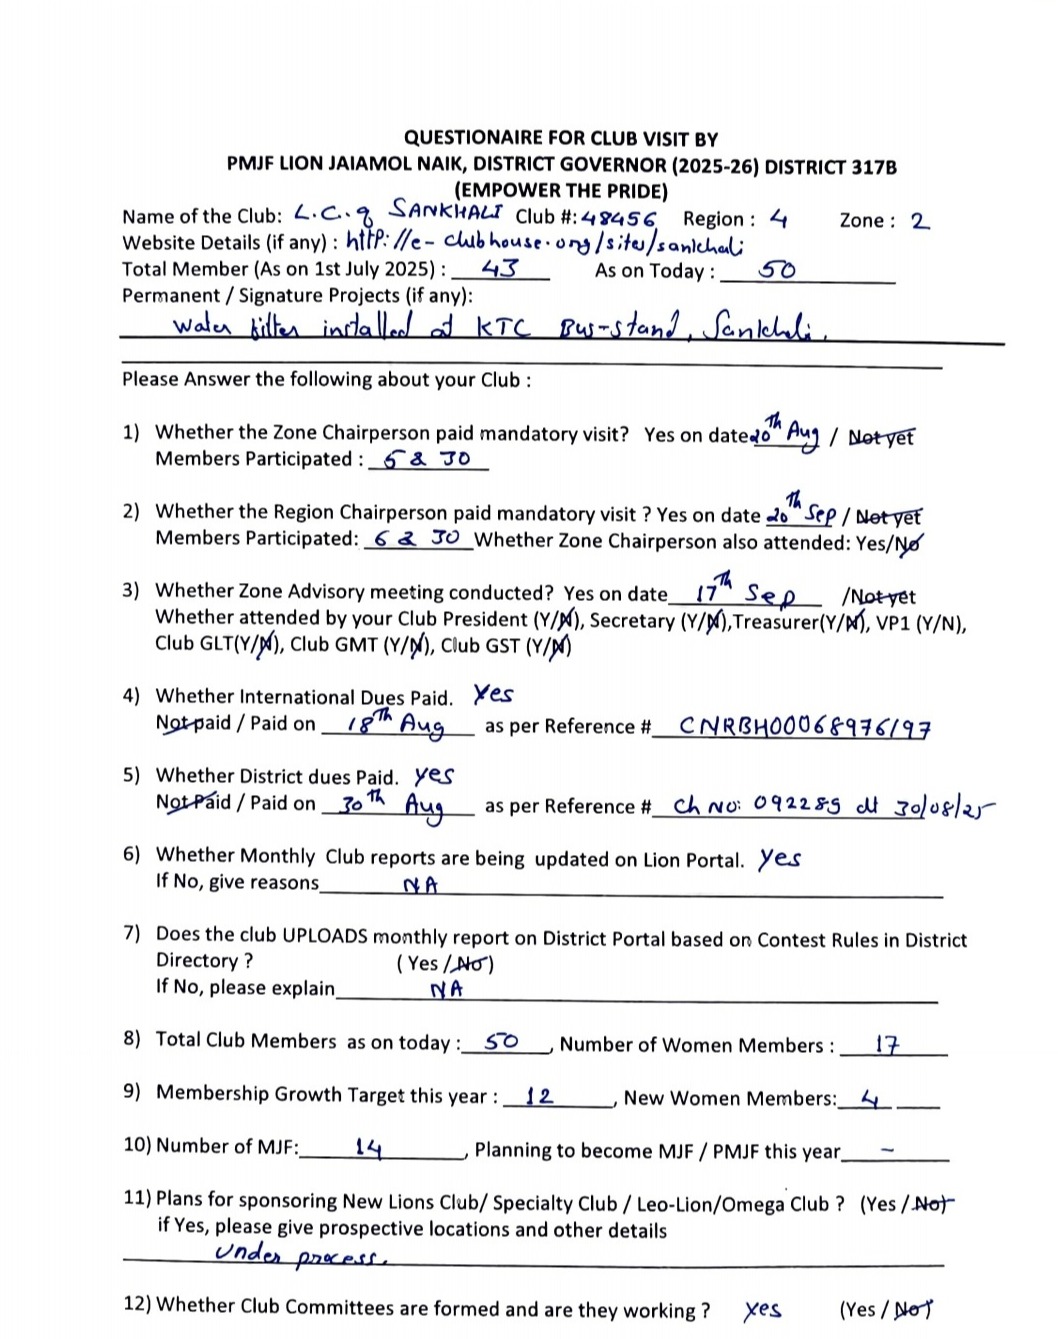 QUESTIONAIRE FOR CLUB VISIT BY
PMJF LION JAIAMOL NAIK, DISTRICT GOVERNOR (2025-26) DISTRICT 317B
(EMPOWER THE PRIDE)
Name of the Club: L.C. of SANKHALI Club #: 48456 Region : 4 Zone : 2
Website Details (if any) : http://e-clubhouse.org/sites/sankhali
Total Member (As on 1st July 2025) : 43 As on Today : 50
Permanent / Signature Projects (if any):
Water filter installed at KTC Bus-stand, Sankhali.
Please Answer the following about your Club :
1) Whether the Zone Chairperson paid mandatory visit? Yes on date 20th Aug / Not yet
Members Participated : 5 & 30
2) Whether the Region Chairperson paid mandatory visit ? Yes on date 20th Sep / Not yet
Members Participated: 6 & 30 Whether Zone Chairperson also attended: Yes/No
3) Whether Zone Advisory meeting conducted? Yes on date 17Th Sep /Not yet
Whether attended by your Club President (Y/N), Secretary (Y/N),Treasurer(Y/N), VP1 (Y/N),
Club GLT(Y/N), Club GMT (Y/N), Club GST (Y/N)
4) Whether International Dues Paid. Yes
Not paid / Paid on 18Th Aug as per Reference # CNRBH00068976197
5) Whether District dues Paid. yes
Not Paid / Paid on 30Th Aug as per Reference # Ch No: 092289 dt 30/08/25
6) Whether Monthly Club reports are being updated on Lion Portal. yes
If No, give reasons NA
7) Does the club UPLOADS monthly report on District Portal based on Contest Rules in District
Directory ? ( Yes / No )
If No, please explain NA
8) Total Club Members as on today : 50 , Number of Women Members : 17
9) Membership Growth Target this year : 12 , New Women Members: 4
10) Number of MJF: 14 , Planning to become MJF / PMJF this year -
11) Plans for sponsoring New Lions Club/ Specialty Club / Leo-Lion/Omega Club ? (Yes / Not
if Yes, please give prospective locations and other details
Under process.
12) Whether Club Committees are formed and are they working ? yes (Yes / Not